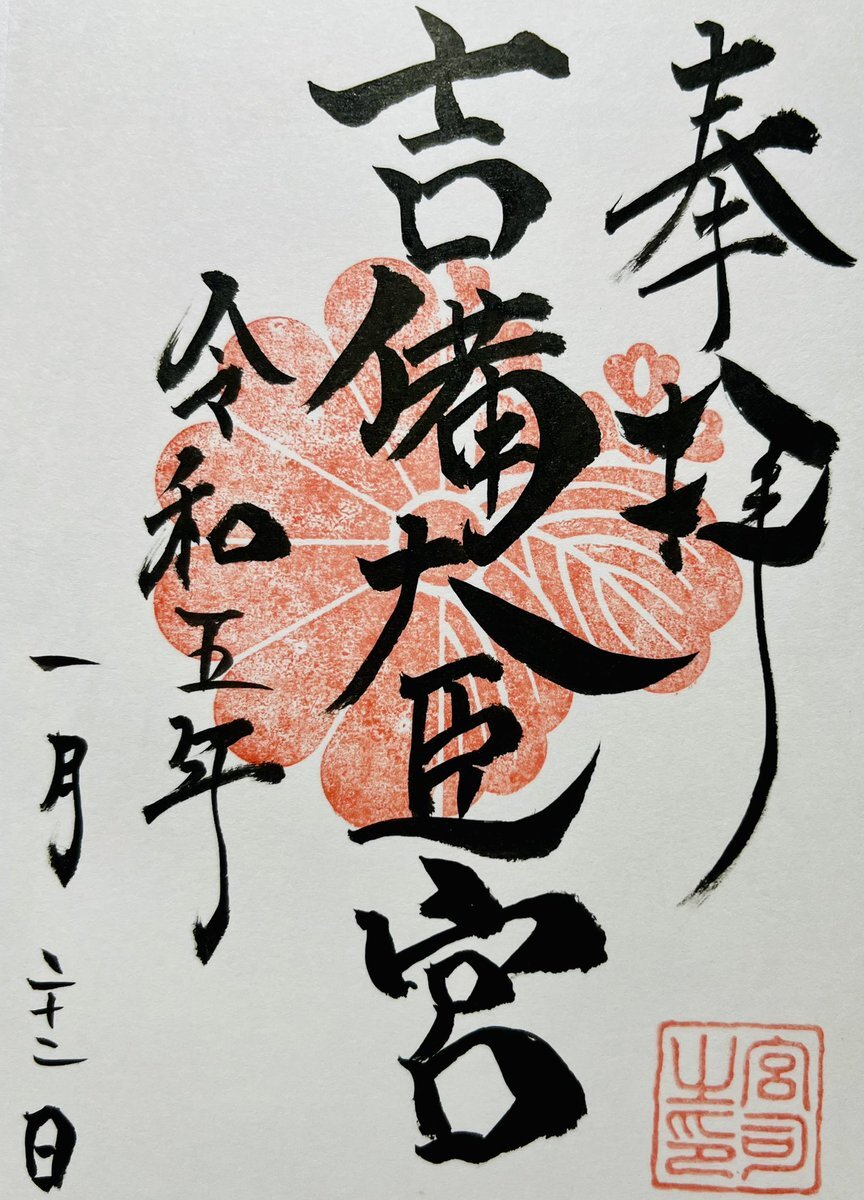 奉拝
吉備大臣宮
令和五年
一月二十二日
宮司之印